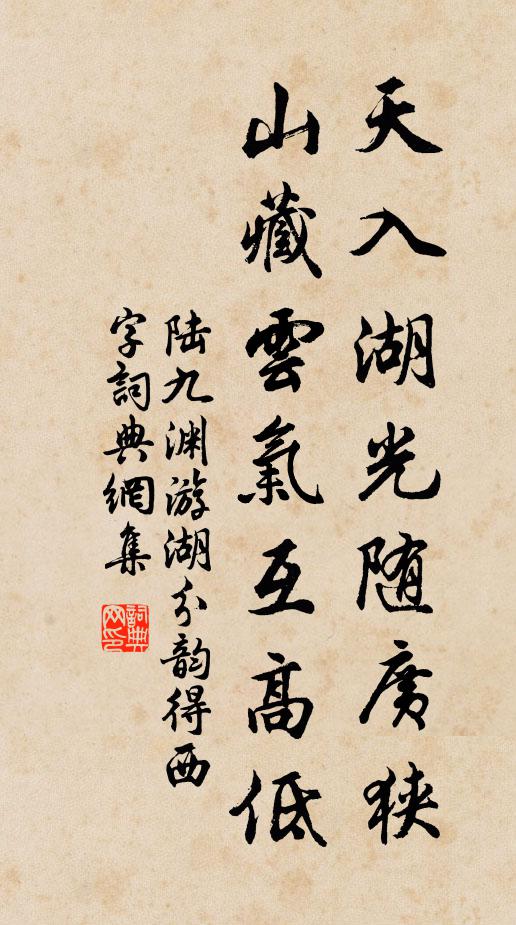 天入湖光随廣狹
山藏雲氣互高低
陆九渊游湖分韵得西
字詞典網集
詞典
网印